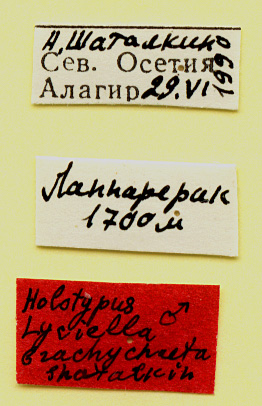 А. Шаталкин
Сев. Осетия
Алагир 29.VI 1991
Лаппарерак
1700м
Holotypus ♂
Lyciella
brachychaeta
Shatalkin